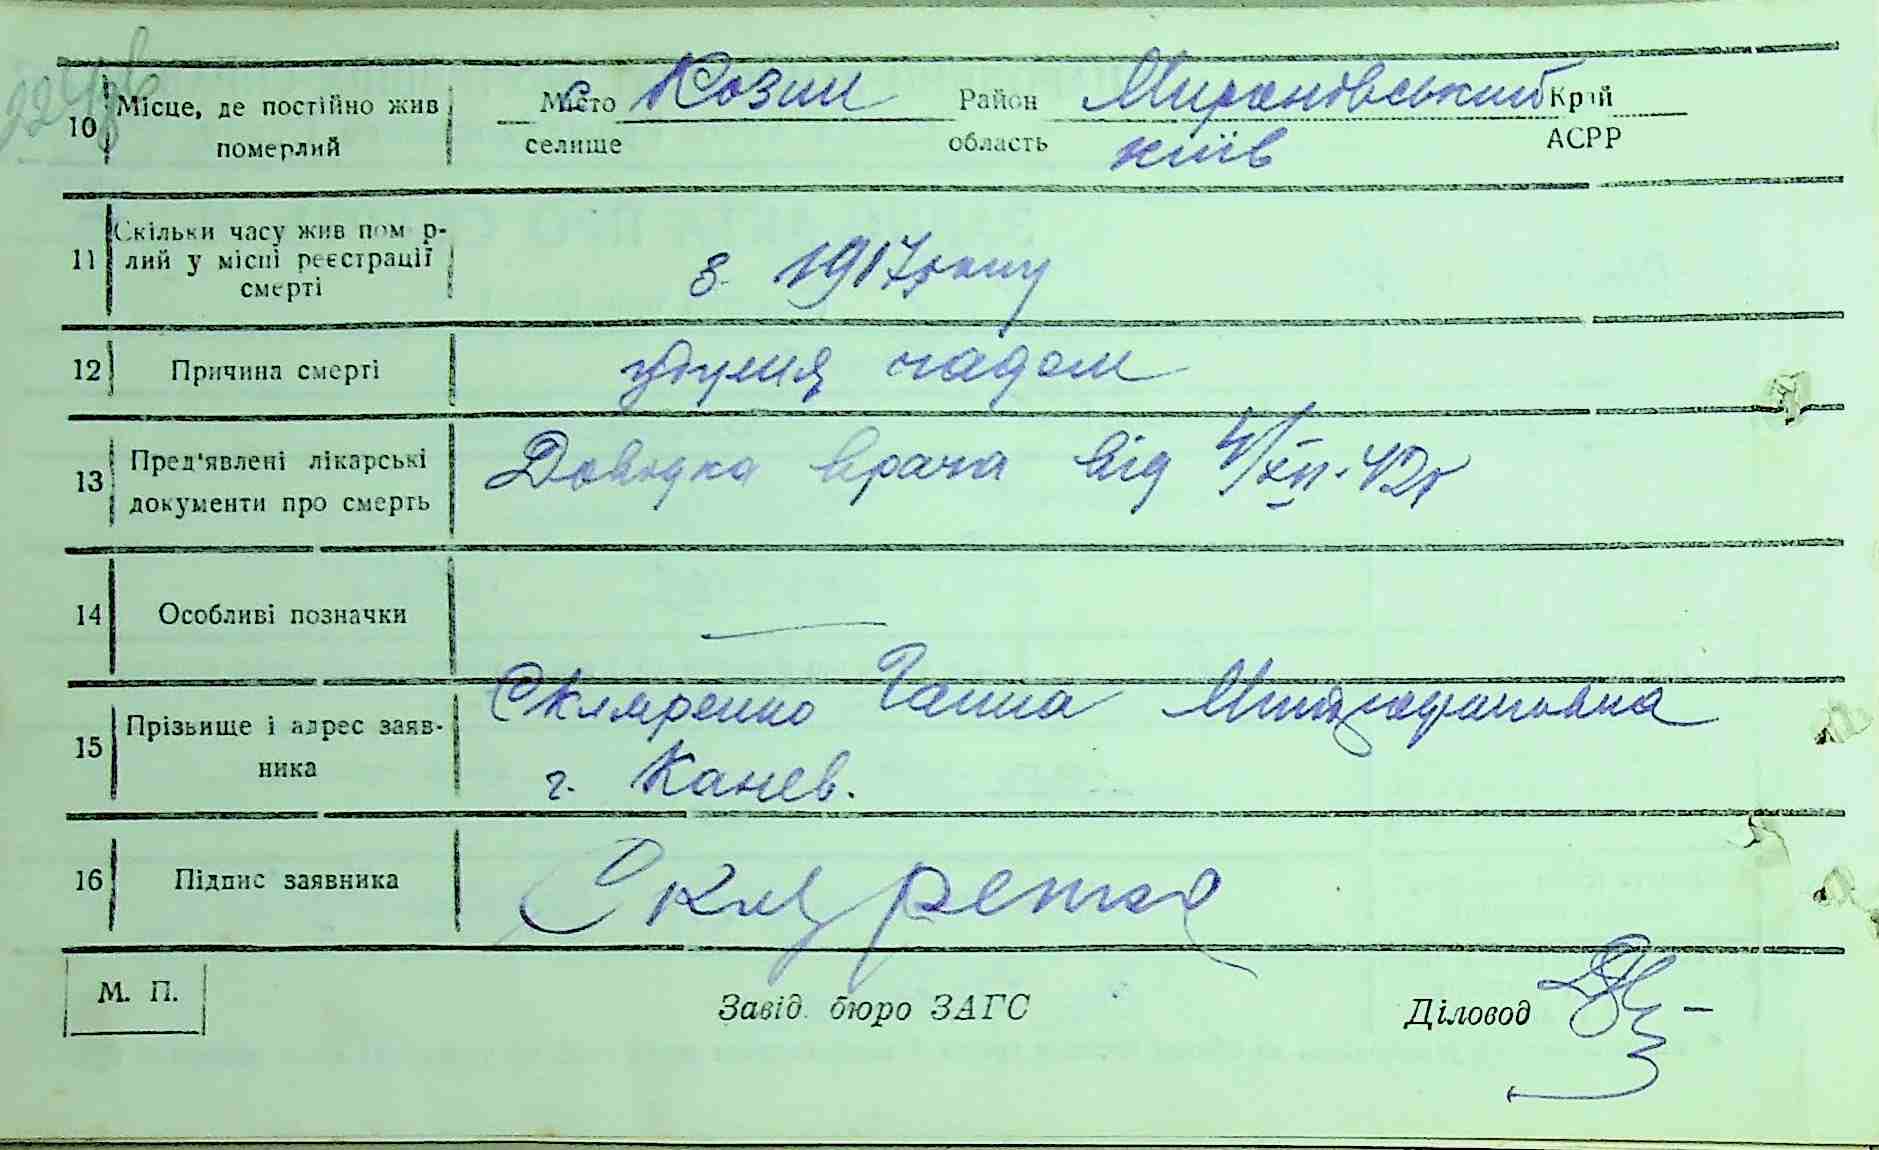 10 Місце, де постійно жив померлий
Місто селище
с. Козин
Район область
Мироновський
Київ
Край АСРР
11 Скільки часу жив помрлий у місці реєстрації смерті
з 1917 року
12 Причина смерті
чадом
13 Пред'явлені лікарські документи про смерть
Довідка врача від 4/XII-42г
14 Особливі позначки
—
15 Прізвище і адрес заявника
Скляренко Ганна Митрофановна
г. Канев.
16 Підпис заявника
Скляренко
М. П.
Завід. бюро ЗАГС
Діловод